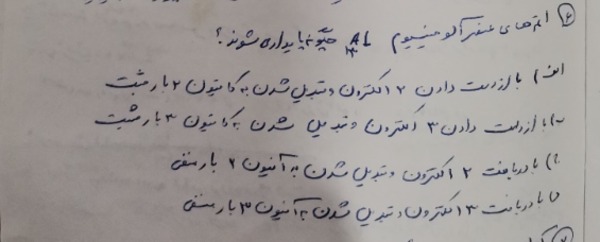 ۶) اتم های عنصر آلومینیوم ₁₃Al چگونه پایدار می شوند؟
الف) با از دست دادن ۲ الکترون و تبدیل شدن به کاتیون ۲ بار مثبت
ب) با از دست دادن ۳ الکترون و تبدیل شدن به کاتیون ۳ بار مثبت
ج) با دریافت ۲ الکترون و تبدیل شدن به آنیون ۲ بار منفی
د) با دریافت ۳ الکترون و تبدیل شدن به آنیون ۳ بار منفی